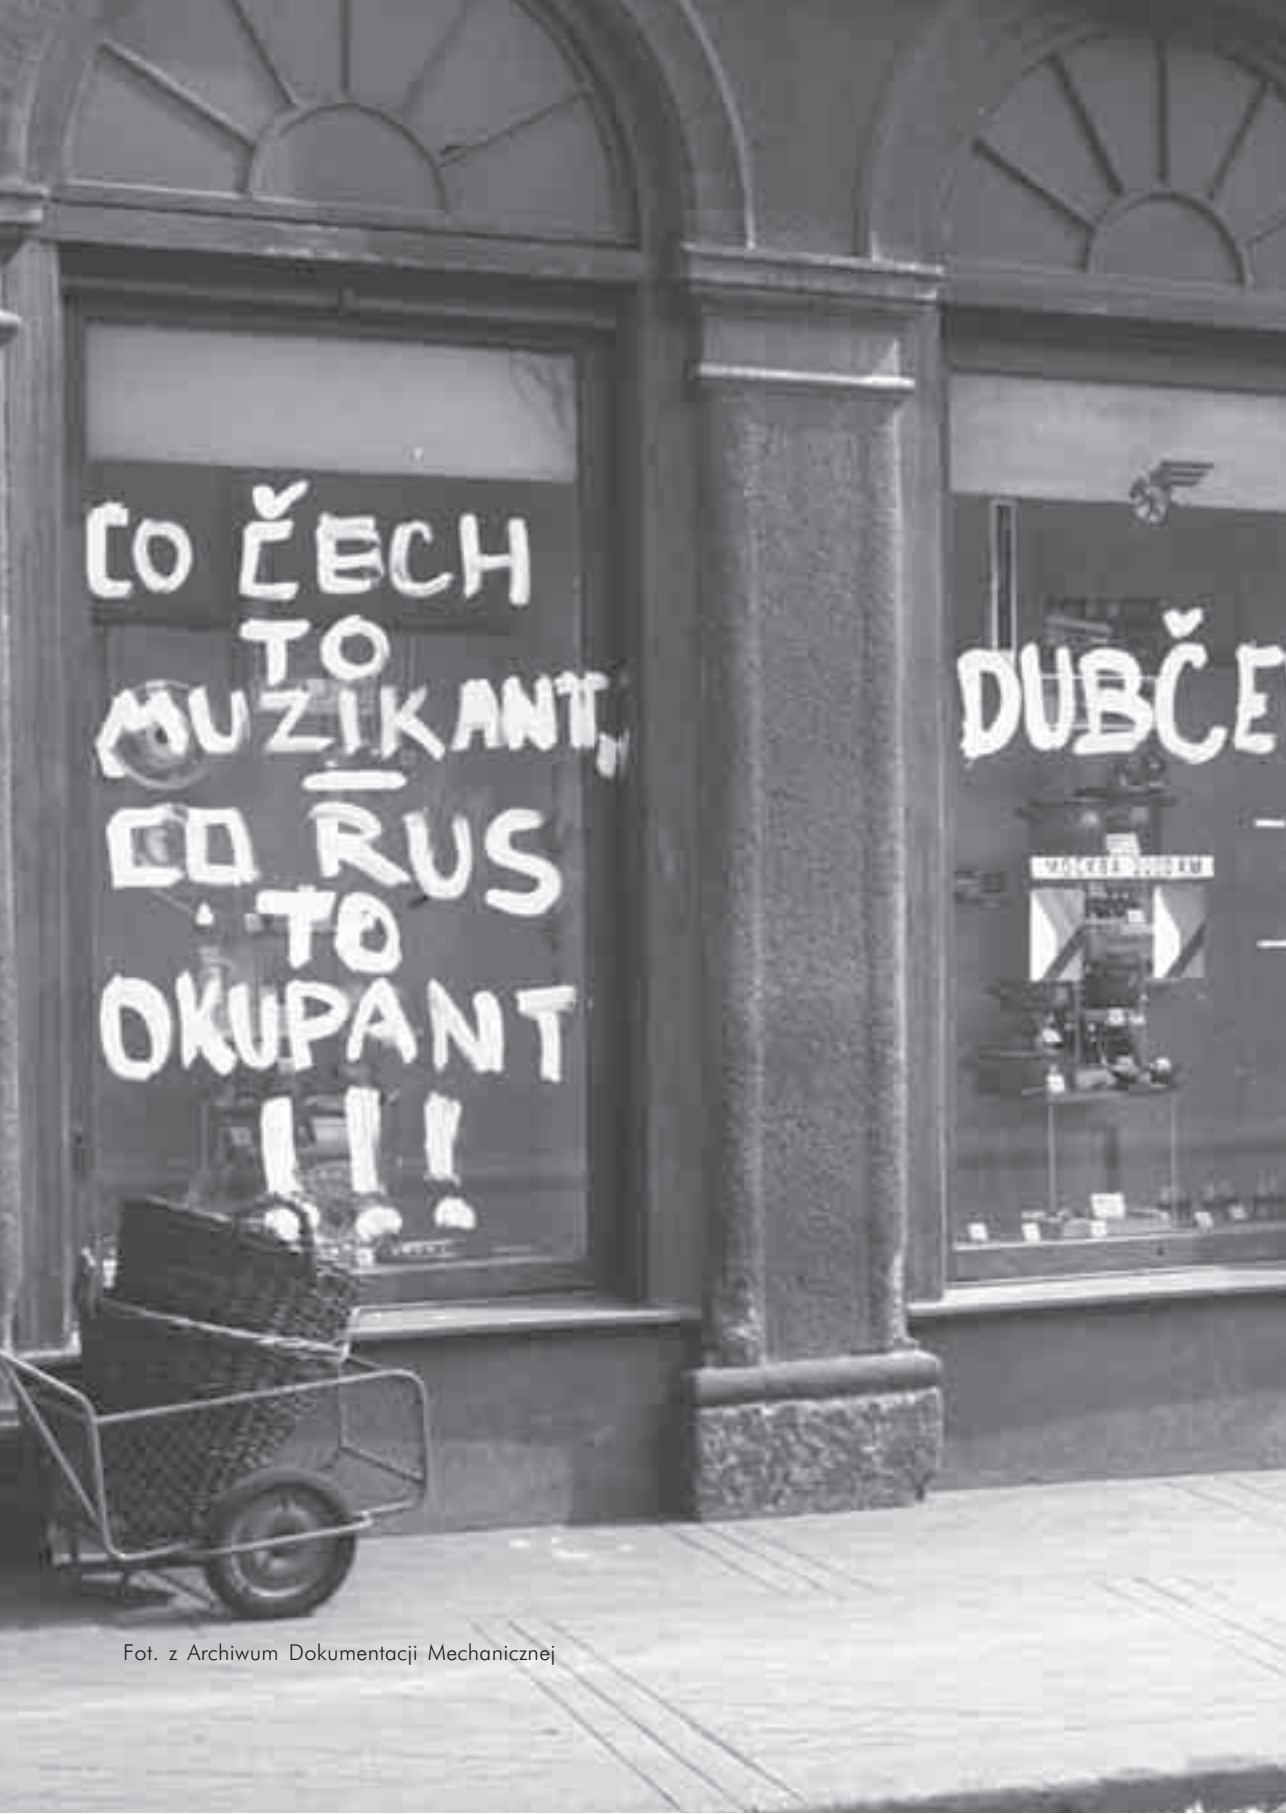 CO ČECH
TO
MUZIKANT,
—
CO RUS
TO
OKUPANT
!!!
DUBČE
МОСКВА 2000 KM
Fot. z Archiwum Dokumentacji Mechanicznej